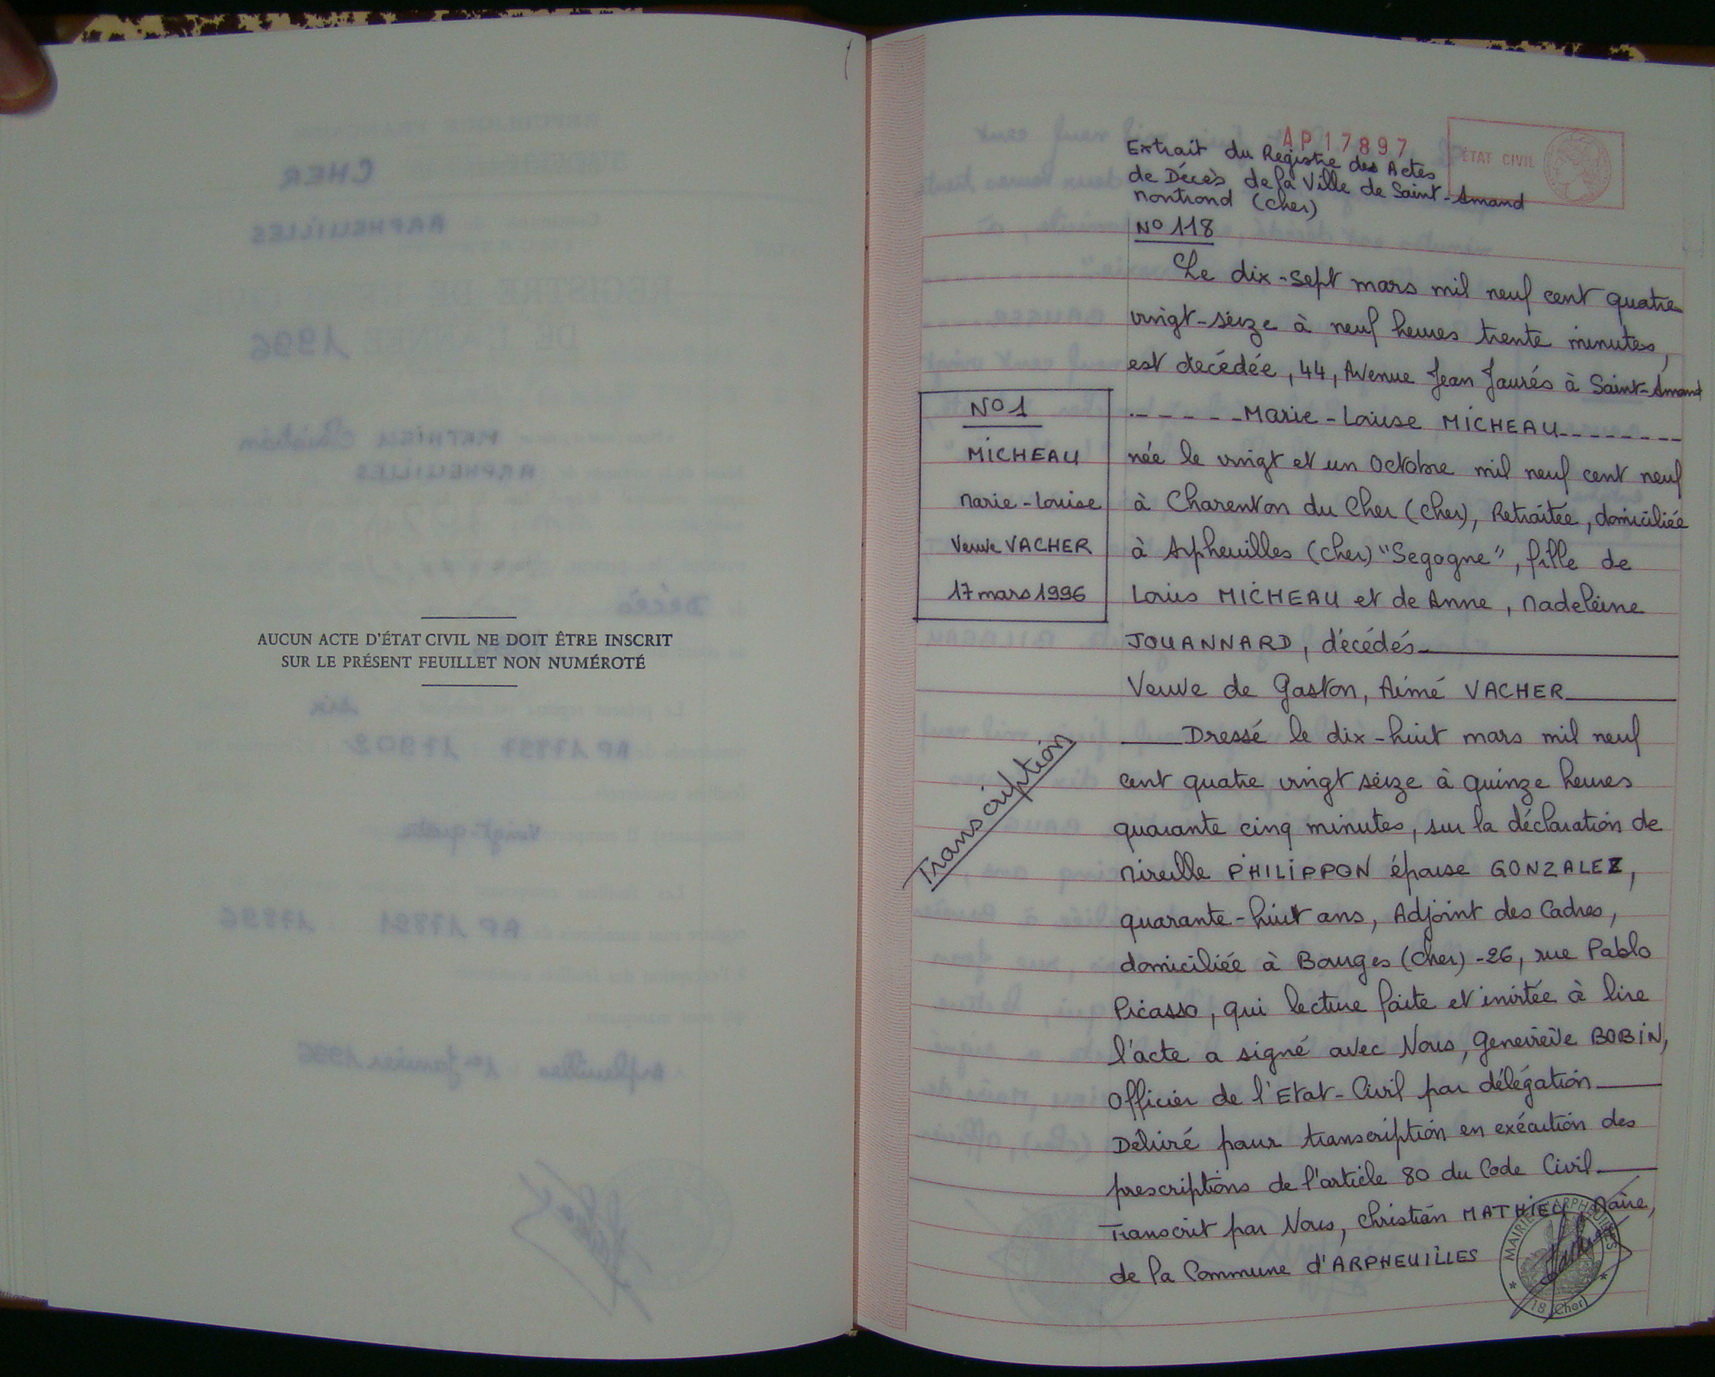 AUCUN ACTE D'ÉTAT CIVIL NE DOIT ÊTRE INSCRIT
SUR LE PRÉSENT FEUILLET NON NUMÉROTÉ
AP 17897
ETAT CIVIL
Extrait du Registre des Actes
de Décès de la Ville de Saint-Amand
Montrond (Cher)
N° 118
Le dix-sept mars mil neuf cent quatre
vingt-seize à neuf heures trente minutes,
est decédée, 44, Avenue Jean Jaurés à Saint-Amand
Marie-Louise MICHEAU
née le vingt et un Octobre mil neuf cent neuf
à Charenton du Cher (Cher), Retraitée, domiciliée
à Arpheuilles (Cher) "Segogne", fille de
Louis MICHEAU et de Anne, Madeleine
JOUANNARD, décédés
Veuve de Gaston, Aimé VACHER
N° 1
MICHEAU
Marie-Louise
Veuve VACHER
17 mars 1996
Transcription
Dressé le dix-huit mars mil neuf
cent quatre vingt seize à quinze heures
quarante cinq minutes, sur la déclaration de
Mireille PHILIPPON épouse GONZALEZ,
quarante-huit ans, Adjoint des Cadres,
domiciliée à Bourges (Cher) -26, rue Pablo
Picasso, qui lecture faite et invitée à lire
l'acte a signé avec Nous, Geneviève BOBIN,
Officier de l'Etat-Civil par délégation
Délivré pour transcription en exécution des
prescriptions de l'article 80 du Code Civil
Transcrit par Nous, Christian MATHIEU, Maire,
de la Commune d'ARPHEUILLES
MAIRIE D'ARPHEUILLES
18 (Cher)